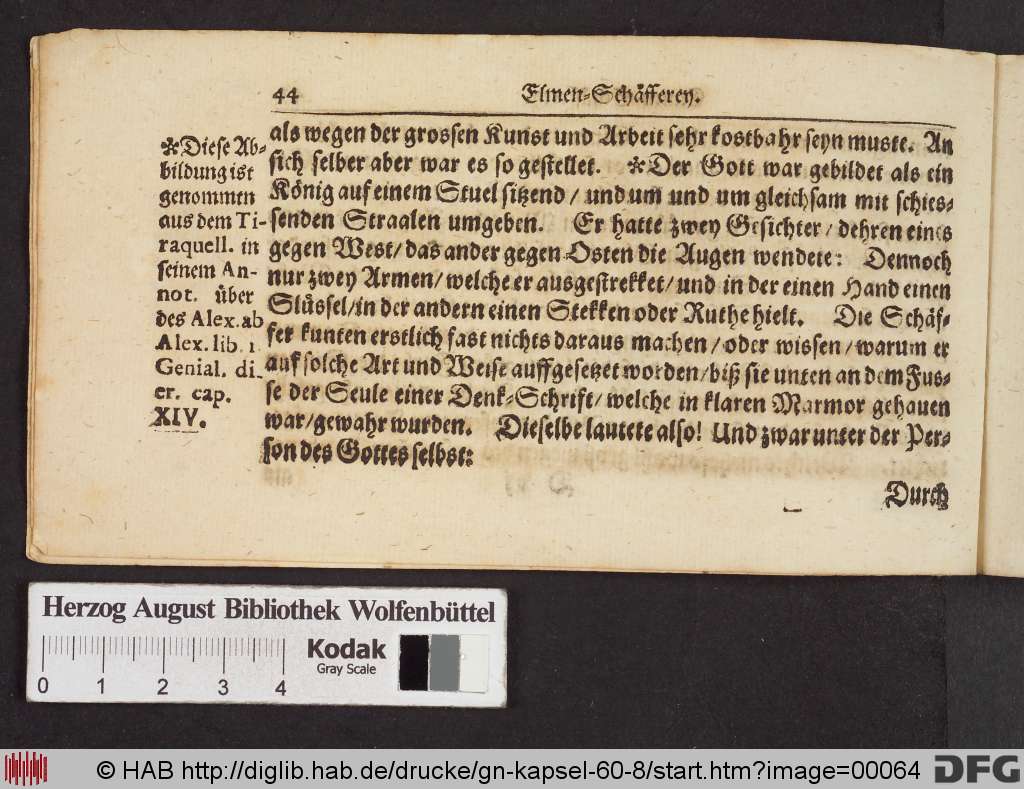 44
Elmen-Schäfferey.
als wegen der grossen Kunst und Arbeit sehr kostbahr seyn muste. An
sich selber aber war es so gestellet. *Der Gott war gebildet als ein
König auf einem Stuel sitzend / und um und um gleichsam mit schies-
senden Straalen umgeben. Er hatte zwey Gesichter / dehren eines
gegen West / das ander gegen Osten die Augen wendete: Dennoch
nur zwey Armen / welche er ausgestrekket / und in der einen Hand einen
Slüssel / in der andern einen Stekken oder Ruthe hielt. Die Schäf-
fer kunten erstlich fast nichts daraus machen / oder wissen / warum er
auf solche Art und Weise auffgesetzet worden / biß sie unten an dem Fus-
se der Seule einer Denk-Schrift / welche in klaren Marmor gehauen
war / gewahr wurden. Dieselbe lautete also! Und zwar unter der Per-
son des Gottes selbst:
Durch
*Diese Ab-
bildung ist
genommen
aus dem Ti-
raquell. in
seinem An-
not. über
des Alex. ab
Alex. lib. 1
Genial. di-
er. cap.
XIV.
Herzog August Bibliothek Wolfenbüttel
Kodak
Gray Scale
0 1 2 3 4
© HAB http://diglib.hab.de/drucke/gn-kapsel-60-8/start.htm?image=00064
DFG